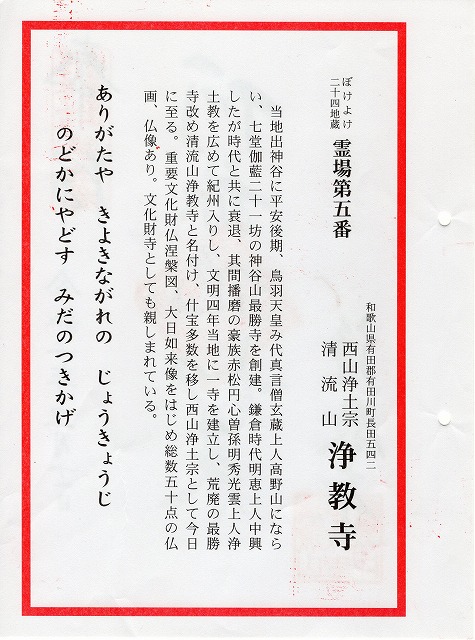 ぼけよけ
二十四地蔵
霊場第五番
和歌山県有田郡有田川町長田五四二
西山浄土宗
清流山
浄教寺
当地出神谷に平安後期、鳥羽天皇み代真言僧玄蔵上人高野山になら
い、七堂伽藍二十一坊の神谷山最勝寺を創建。鎌倉時代明恵上人中興
したが時代と共に衰退、其間播磨の豪族赤松円心曽孫明秀光雲上人浄
土教を広めて紀州入りし、文明四年当地に一寺を建立し、荒廃の最勝
寺改め清流山浄教寺と名付け、什宝多数を移し西山浄土宗として今日
に至る。重要文化財仏涅槃図、大日如来像をはじめ総数五十点の仏
画、仏像あり。文化財寺としても親しまれている。
ありがたや　きよきながれの　じょうきょうじ
のどかにやどす　みだのつきかげ